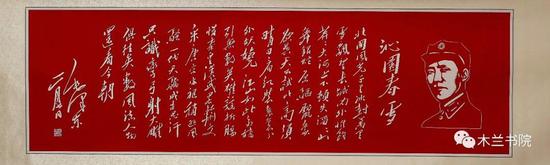 沁园春 雪
北国风光千里冰封万里
雪飘望长城内外惟馀
莽莽大河上下顿失滔滔山
舞银蛇原驰蜡象
欲与天公试比高须
晴日看红装素裹分
外妖娆 江山如此多娇
引无数英雄竞折腰
惜秦皇汉武略输文
采唐宗宋祖稍逊风
骚一代天骄成吉思汗
只识弯弓射大雕
俱往矣数风流人物
还看今朝
毛泽东
木兰书院